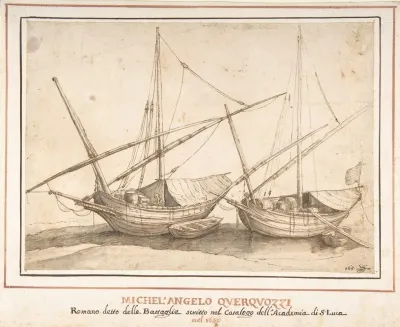 MICHEL'ANGELO QVERQVOZZI
Romano detto delle Battaglie scritto nel Catalogo dell'Academia di S.t Luca
nel 1650